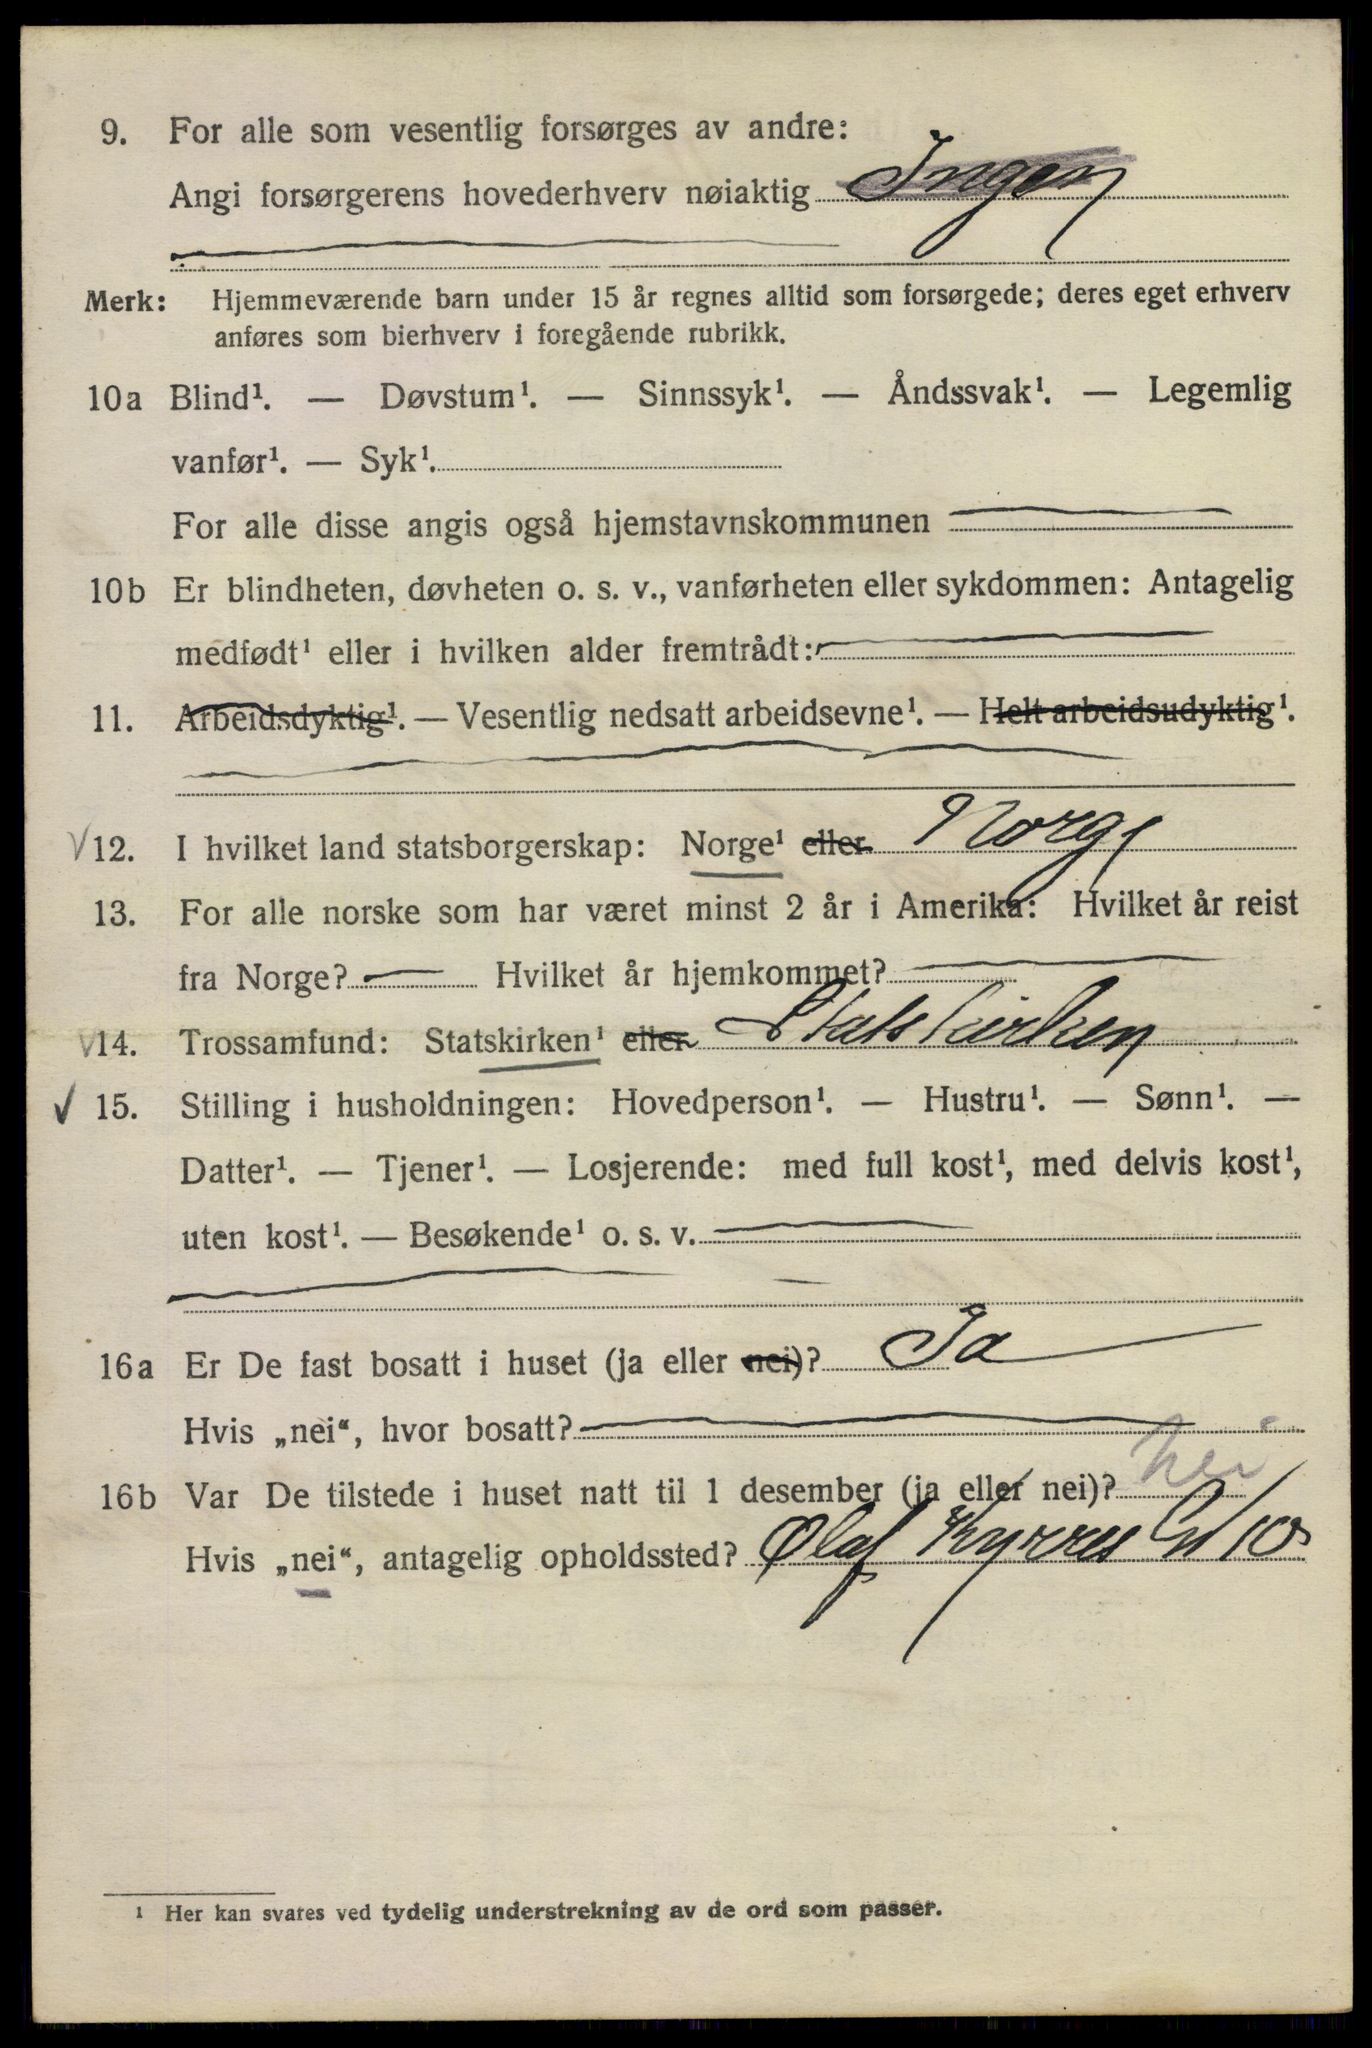 9. For alle som vesentlig forsørges av andre:
Angi forsørgerens hovederhverv nøiaktig Ingen
Merk: Hjemmeværende barn under 15 år regnes alltid som forsørgede; deres eget erhverv
anføres som bierhverv i foregående rubrikk.
10a Blind¹. — Døvstum¹. — Sinnssyk¹. — Åndssvak¹. — Legemlig
vanfør¹. — Syk¹.
For alle disse angis også hjemstavnskommunen
10b Er blindheten, døvheten o. s. v., vanførheten eller sykdommen: Antagelig
medfødt¹ eller i hvilken alder fremtrådt:
11. Arbeidsdyktig¹. — Vesentlig nedsatt arbeidsevne¹. — Helt arbeidsudyktig¹.
V 12. I hvilket land statsborgerskap: Norge¹ eller Norge
13. For alle norske som har været minst 2 år i Amerika: Hvilket år reist
fra Norge? — Hvilket år hjemkommet?
V 14. Trossamfund: Statskirken¹ eller Statskirken
V 15. Stilling i husholdningen: Hovedperson¹. — Hustru¹. — Sønn¹. —
Datter¹. — Tjener¹. — Losjerende: med full kost¹, med delvis kost¹,
uten kost¹. — Besøkende¹ o. s. v.
16a Er De fast bosatt i huset (ja eller nei)? Ja
Hvis „nei“, hvor bosatt?
16b Var De tilstede i huset natt til 1 desember (ja eller nei)? nei
Hvis „nei“, antagelig opholdssted? Olaf Kyrres G/10
¹ Her kan svares ved tydelig understrekning av de ord som passer.